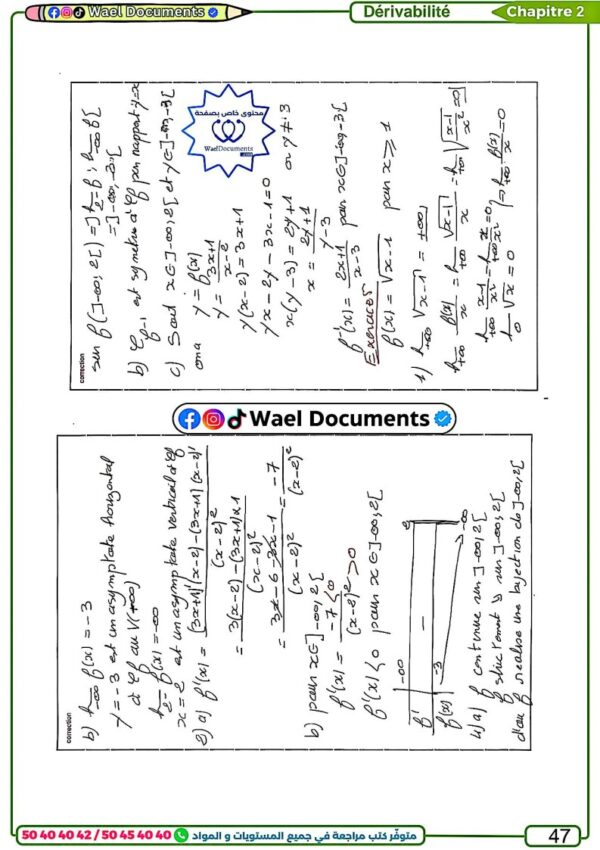 Wael Documents
Dérivabilité
Chapitre 2
correction
b) lim f(x) = -3
-∞
y = -3 est un asymptote horizontal
à Cf au V(+∞)
lim f(x) = -∞
2-
x = 2 est un asymptote vertical à Cf
2) a) f'(x) = (3x+1)'(x-2) - (3x+1)(x-2)'
(x-2)²
= 3(x-2) - (3x+1)x1
(x-2)²
= 3x - 6 - 3x - 1 = -7
(x-2)² (x-2)²
b) pour x∈]-∞, 2[
f'(x) = -7 < 0
(x-2)² > 0
f'(x) < 0 pour x∈]-∞, 2[
-∞ 2
f' -
f(x) -3 -∞
4) a) f continue sur ]-∞, 2[
f strictement ↘ sur ]-∞, 2[
d'où f réalise une bijection de ]-∞, 2[
Wael Documents
correction
sur f(]-∞; 2[) = ]lim f ; lim f[
2- -∞
= ]-∞, -3[
b) Cf-1 est symétrie à Cf par rapport y=x
c) Soit x∈]-∞, 2[ et y∈]-∞, -3[
on a y = f(x)
y = 3x+1
x-2
y(x-2) = 3x+1
yx - 2y - 3x - 1 = 0
x(y-3) = 2y+1 or y ≠ 3
x = 2y+1
y-3
f-1(x) = 2x+1 pour x∈]-∞, -3[
x-3
Exercice
f(x) = √x-1 pour x ≥ 1
1) lim √x-1 = +∞,
+∞
lim f(x) = lim √x-1 = lim √x-1 = 0
+∞ x +∞ x +∞ x²
lim x-1 = lim x = 0,
+∞ x² +∞ x²
lim √x = 0 ⇒ lim f(x) = 0
0 +∞ x
محتوى خاص بصفحة
WaelDocuments
50 40 40 42 / 50 45 40 40
متوفّر كتب مراجعة في جميع المستويات و المواد
47